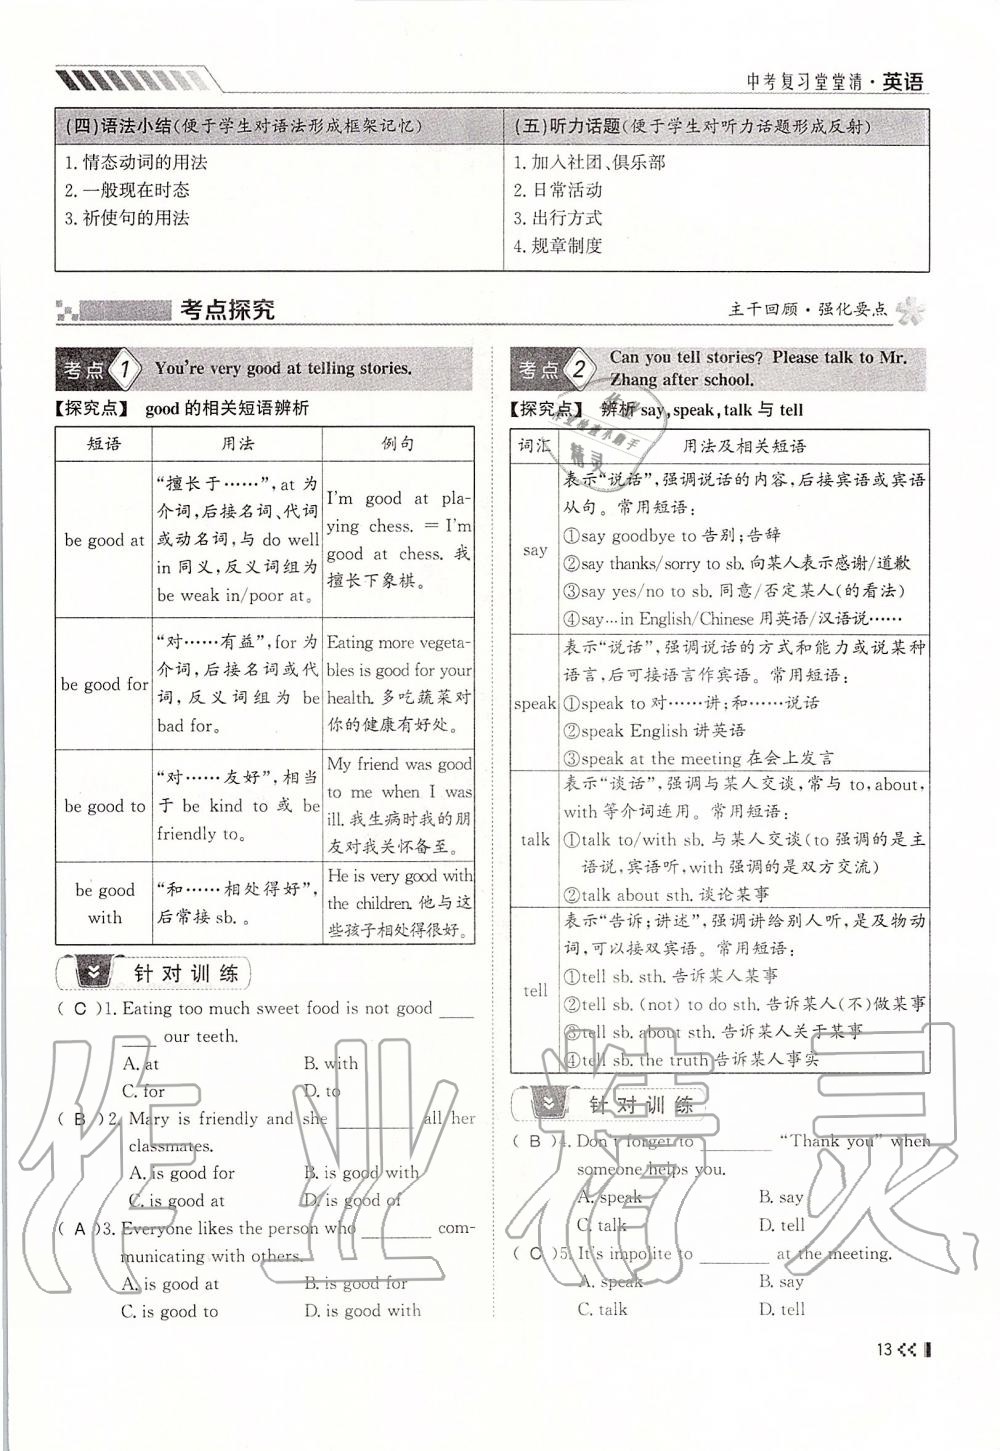 中考复习堂堂清·英语
(四)语法小结(便于学生对语法形成框架记忆)
1.情态动词的用法
2.一般现在时态
3.祈使句的用法
(五)听力话题(便于学生对听力话题形成反射)
1.加入社团、俱乐部
2.日常活动
3.出行方式
4.规章制度
考点探究
主干回顾·强化要点
考点 1 You're very good at telling stories.
【探究点】 good的相关短语辨析
短语 用法 例句
be good at
“擅长于……”,at 为
介词,后接名词、代词
或动名词,与 do well
in 同义,反义词组为
be weak in/poor at。
I'm good at pla-
ying chess. = I'm
good at chess. 我
擅长下象棋。
be good for
“对……有益”,for 为
介词,后接名词或代
词,反义词组为 be
bad for。
Eating more vegeta-
bles is good for your
health. 多吃蔬菜对
你的健康有好处。
be good to
“对……友好”,相当
于 be kind to 或 be
friendly to。
My friend was good
to me when I was
ill. 我生病时我的朋
友对我关怀备至。
be good
with
“和……相处得好”,
后常接 sb.。
He is very good with
the children. 他与这
些孩子相处得很好。
针对训练
( C )1. Eating too much sweet food is not good ____
____ our teeth.
A. at B. with
C. for D. to
( B )2. Mary is friendly and she ________ all her
classmates.
A. is good for B. is good with
C. is good at D. is good of
( A )3. Everyone likes the person who ________ com-
municating with others.
A. is good at B. is good for
C. is good to D. is good with
考点 2 Can you tell stories? Please talk to Mr.
Zhang after school.
【探究点】 辨析 say,speak,talk 与 tell
词汇 用法及相关短语
say
表示“说话”,强调说话的内容,后接宾语或宾语
从句。常用短语:
①say goodbye to 告别;告辞
②say thanks/sorry to sb. 向某人表示感谢/道歉
③say yes/no to sb. 同意/否定某人(的看法)
④say…in English/Chinese 用英语/汉语说……
speak
表示“说话”,强调说话的方式和能力或说某种
语言,后可接语言作宾语。常用短语:
①speak to 对……讲;和……说话
②speak English 讲英语
③speak at the meeting 在会上发言
talk
表示“谈话”,强调与某人交谈,常与 to,about,
with 等介词连用。常用短语:
①talk to/with sb. 与某人交谈(to 强调的是主
语说,宾语听,with 强调的是双方交流)
②talk about sth. 谈论某事
tell
表示“告诉;讲述”,强调讲给别人听,是及物动
词,可以接双宾语。常用短语:
①tell sb. sth. 告诉某人某事
②tell sb. (not) to do sth. 告诉某人(不)做某事
③tell sb. about sth. 告诉某人关于某事
④tell sb. the truth 告诉某人事实
针对训练
( B )4. Don't forget to ________ “Thank you” when
someone helps you.
A. speak B. say
C. talk D. tell
( C )5. It's impolite to ________ at the meeting.
A. speak B. say
C. talk D. tell
13
作业精灵